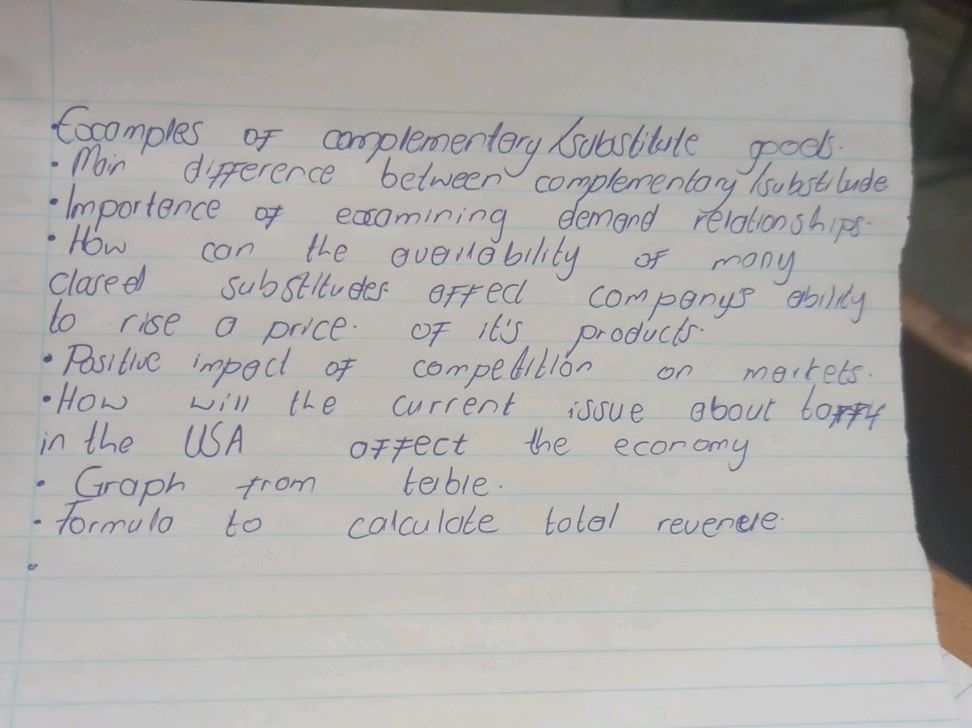 • Excamples of complementary/substitute goods.
• Main difference between complementary/substitude
• Importance of examining demand relationships.
• How can the availability of many
clased substitutes affect company's ability
to rise a price. of it's products.
• Positive impact of competition on markets.
• How will the current issue about
in the USA affect the economy
• Graph from table.
• formula to calculate total revenue.
•